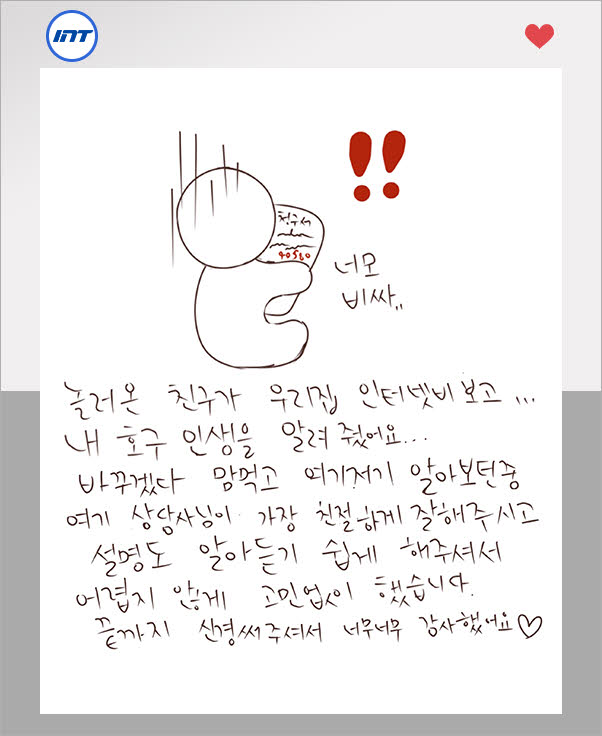 INT
!!
청구서
40580
너모
비싸,,
놀러온 친구가 우리집 인터넷비보고 ...
내 호구 인생을 알려줬어요...
바꾸겠다 맘먹고 여기저기 알아보던중
여기 상담사님이 가장 친절하게 잘해주시고
설명도 알아듣기 쉽게 해주셔서
어렵지 않게 고민없이 했습니다.
끝까지 신경써주셔서 너무너무 감사했어요♡